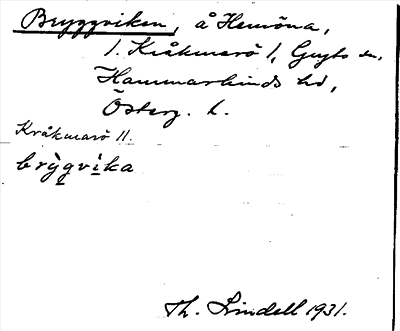 Bryggviken, å Hemöna,
l. Kråkmarö 1, Gryts sn,
Hammarkinds hd,
Österg. l.
Kråkmarö 11.
brỳgvìka
Th. Lindell 1931.